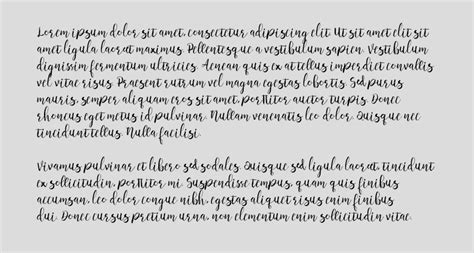 Lorem ipsum dolor sit amet, consectetur adipiscing elit. Ut sit amet elit sit
amet ligula laoreet maximus. Pellentesque a vestibulum sapien. Vestibulum
dignissim fermentum ultricies. Aenean quis ex at tellus imperdiet convallis
vel vitae risus. Praesent rutrum vel magna egestas lobortis. Sed purus
mauris, semper aliquam eros sit amet, porttitor auctor turpis. Donec
rhoncus eget metus id pulvinar. Nullam venenatis leo dolor. Quisque nec
tincidunt tellus. Nulla facilisi.

Vivamus pulvinar et libero sed sodales. Quisque sed ligula laoreet, tincidunt
ex sollicitudin, porttitor mi. Suspendisse tempus, quam quis finibus
accumsan, leo dolor congue nibh, egestas aliquet risus enim finibus
dui. Donec cursus pretium urna, non elementum enim sollicitudin vitae.